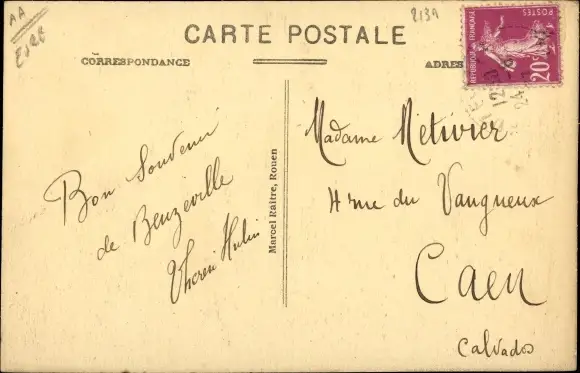 AA
Eure
2139
CARTE POSTALE
CORRESPONDANCE
ADRES
POSTES
REPUBLIQUE FRANÇAISE
20c
Bon Souvenir
de Beuzeville
Hulin
Marcel Raître, Rouen
Madame Métivier
4 rue du Vaugueux
Caen
Calvados